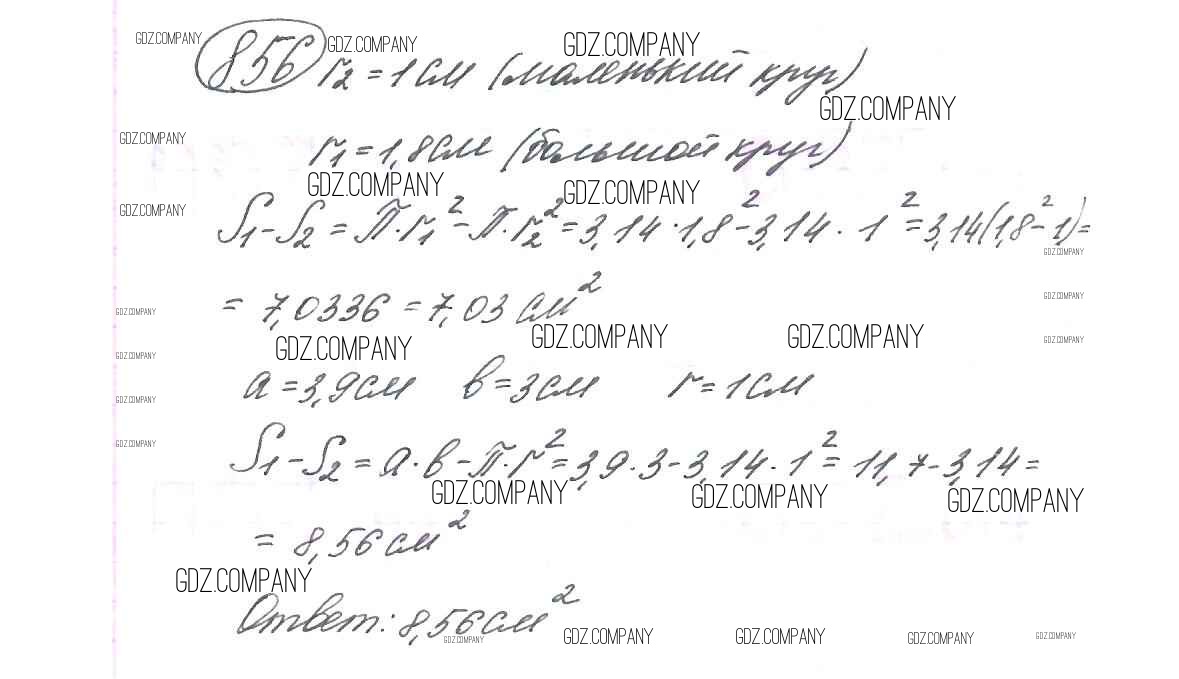 GDZ.COMPANY GDZ.COMPANY GDZ.COMPANY
856 r₂ = 1 см (маленький круг)
GDZ.COMPANY
GDZ.COMPANY
r₁ = 1,8 см (большой круг)
GDZ.COMPANY GDZ.COMPANY
GDZ.COMPANY
S₁ - S₂ = π · r₁² - π · r₂² = 3,14 · 1,8² - 3,14 · 1² = 3,14(1,8² - 1) =
GDZ.COMPANY
= 7,0336 = 7,03 см²
GDZ.COMPANY
GDZ.COMPANY
GDZ.COMPANY GDZ.COMPANY GDZ.COMPANY
GDZ.COMPANY
GDZ.COMPANY
a = 3,9 см в = 3 см r = 1 см
GDZ.COMPANY
GDZ.COMPANY
S₁ - S₂ = a · в - π · r² = 3,9 · 3 - 3,14 · 1² = 11,7 - 3,14 =
GDZ.COMPANY GDZ.COMPANY GDZ.COMPANY
= 8,56 см²
GDZ.COMPANY
Ответ: 8,56 см²
GDZ.COMPANY GDZ.COMPANY GDZ.COMPANY GDZ.COMPANY GDZ.COMPANY